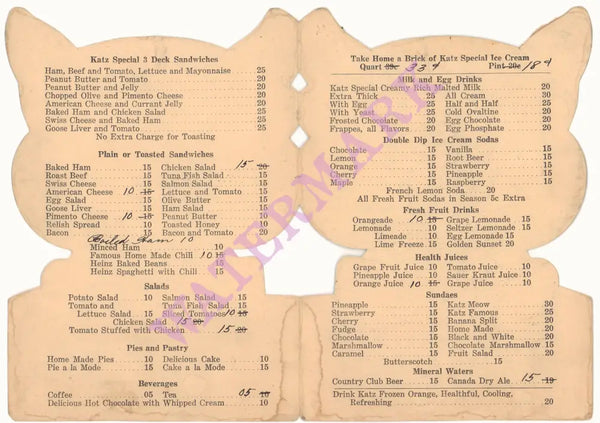 Katz Special 3 Deck Sandwiches
Ham, Beef and Tomato, Lettuce and Mayonnaise 25
Peanut Butter and Tomato 20
Peanut Butter and Jelly 20
Chopped Olive and Pimento Cheese 20
American Cheese and Currant Jelly 20
Baked Ham and Chicken Salad 25
Swiss Cheese and Baked Ham 25
Goose Liver and Tomato 25
No Extra Charge for Toasting
Plain or Toasted Sandwiches
Baked Ham 15 Chicken Salad 15 20
Roast Beef 15 Tuna Fish Salad 15
Swiss Cheese 15 Salmon Salad 15
American Cheese 10 15 Lettuce and Tomato 15
Egg Salad 15 Olive Butter 15
Goose Liver 15 Ham Salad 15
Pimento Cheese 10 15 Peanut Butter 10
Relish Spread 10 Toasted Honey 10
Bacon 15 Bacon and Tomato 20
Boiled Ham 10
Minced Ham 10
Famous Home Made Chili 10 15
Heinz Baked Beans 15
Heinz Spaghetti with Chili 15
Salads
Potato Salad 10 Salmon Salad 15
Tomato and Tuna Fish Salad 15
Lettuce Salad 15 Sliced Tomatoes 10 15
Chicken Salad 15 20
Tomato Stuffed with Chicken 15 20
Pies and Pastry
Home Made Pies 10 Delicious Cake 10
Pie a la Mode 15 Cake a la Mode 15
Beverages
Coffee .05 Tea 05 10
Delicious Hot Chocolate with Whipped Cream 10
Take Home a Brick of Katz Special Ice Cream
Quart 39c 33¢ Pint 20c 18¢
Milk and Egg Drinks
Katz Special Creamy Rich Malted Milk 20
Extra Thick 25 All Cream 30
With Egg 25 Half and Half 25
With Yeast 25 Cold Ovaltine 20
Frosted Chocolate 20 Egg Chocolate 20
Frappes, all Flavors 20 Egg Phosphate 20
Double Dip Ice Cream Sodas
Chocolate 15 Vanilla 15
Lemon 15 Root Beer 15
Orange 15 Strawberry 15
Cherry 15 Pineapple 15
Maple 15 Raspberry 15
French Lemon Soda 20
All Fresh Fruit Sodas in Season 5c Extra
Fresh Fruit Drinks
Orangeade 10 15 Grape Lemonade 15
Lemonade 10 Seltzer Lemonade 15
Limeade 10 Egg Lemonade 15
Lime Freeze 15 Golden Sunset 20
Health Juices
Grape Fruit Juice 10 Tomato Juice 10
Pineapple Juice 10 Sauer Kraut Juice 10
Orange Juice 10 15 Grape Juice 10
Sundaes
Pineapple 15 Katz Meow 30
Strawberry 15 Katz Famous 25
Cherry 15 Banana Split 20
Fudge 15 Home Made 20
Chocolate 15 Black and White 20
Marshmallow 15 Chocolate Marshmallow 15
Caramel 15 Fruit Salad 20
Butterscotch 15
Mineral Waters
Country Club Beer 15 Canada Dry Ale 15 19
Drink Katz Frozen Orange, Healthful, Cooling,
Refreshing 20
WATERMARK